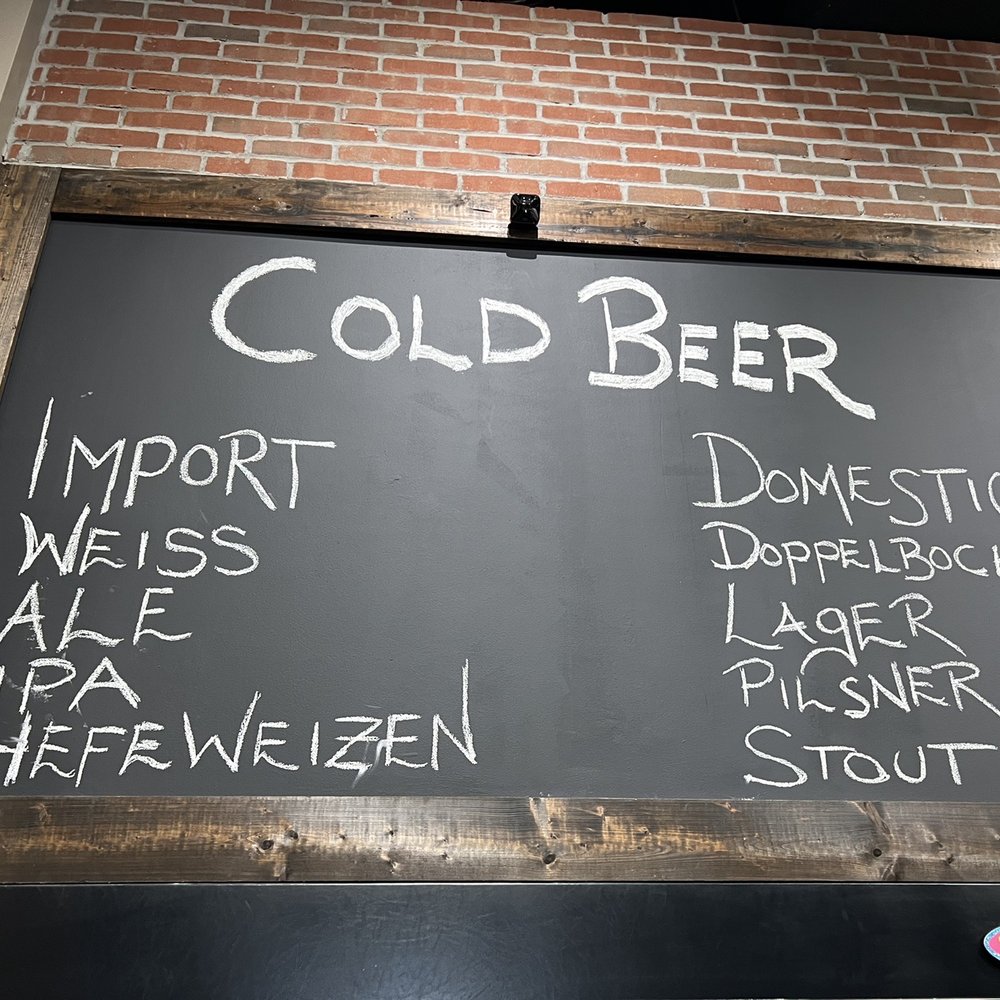 COLD BEER
IMPORT
WEISS
ALE
IPA
HEFEWEIZEN
DOMESTIC
DOPPELBOCK
LAGER
PILSNER
STOUT